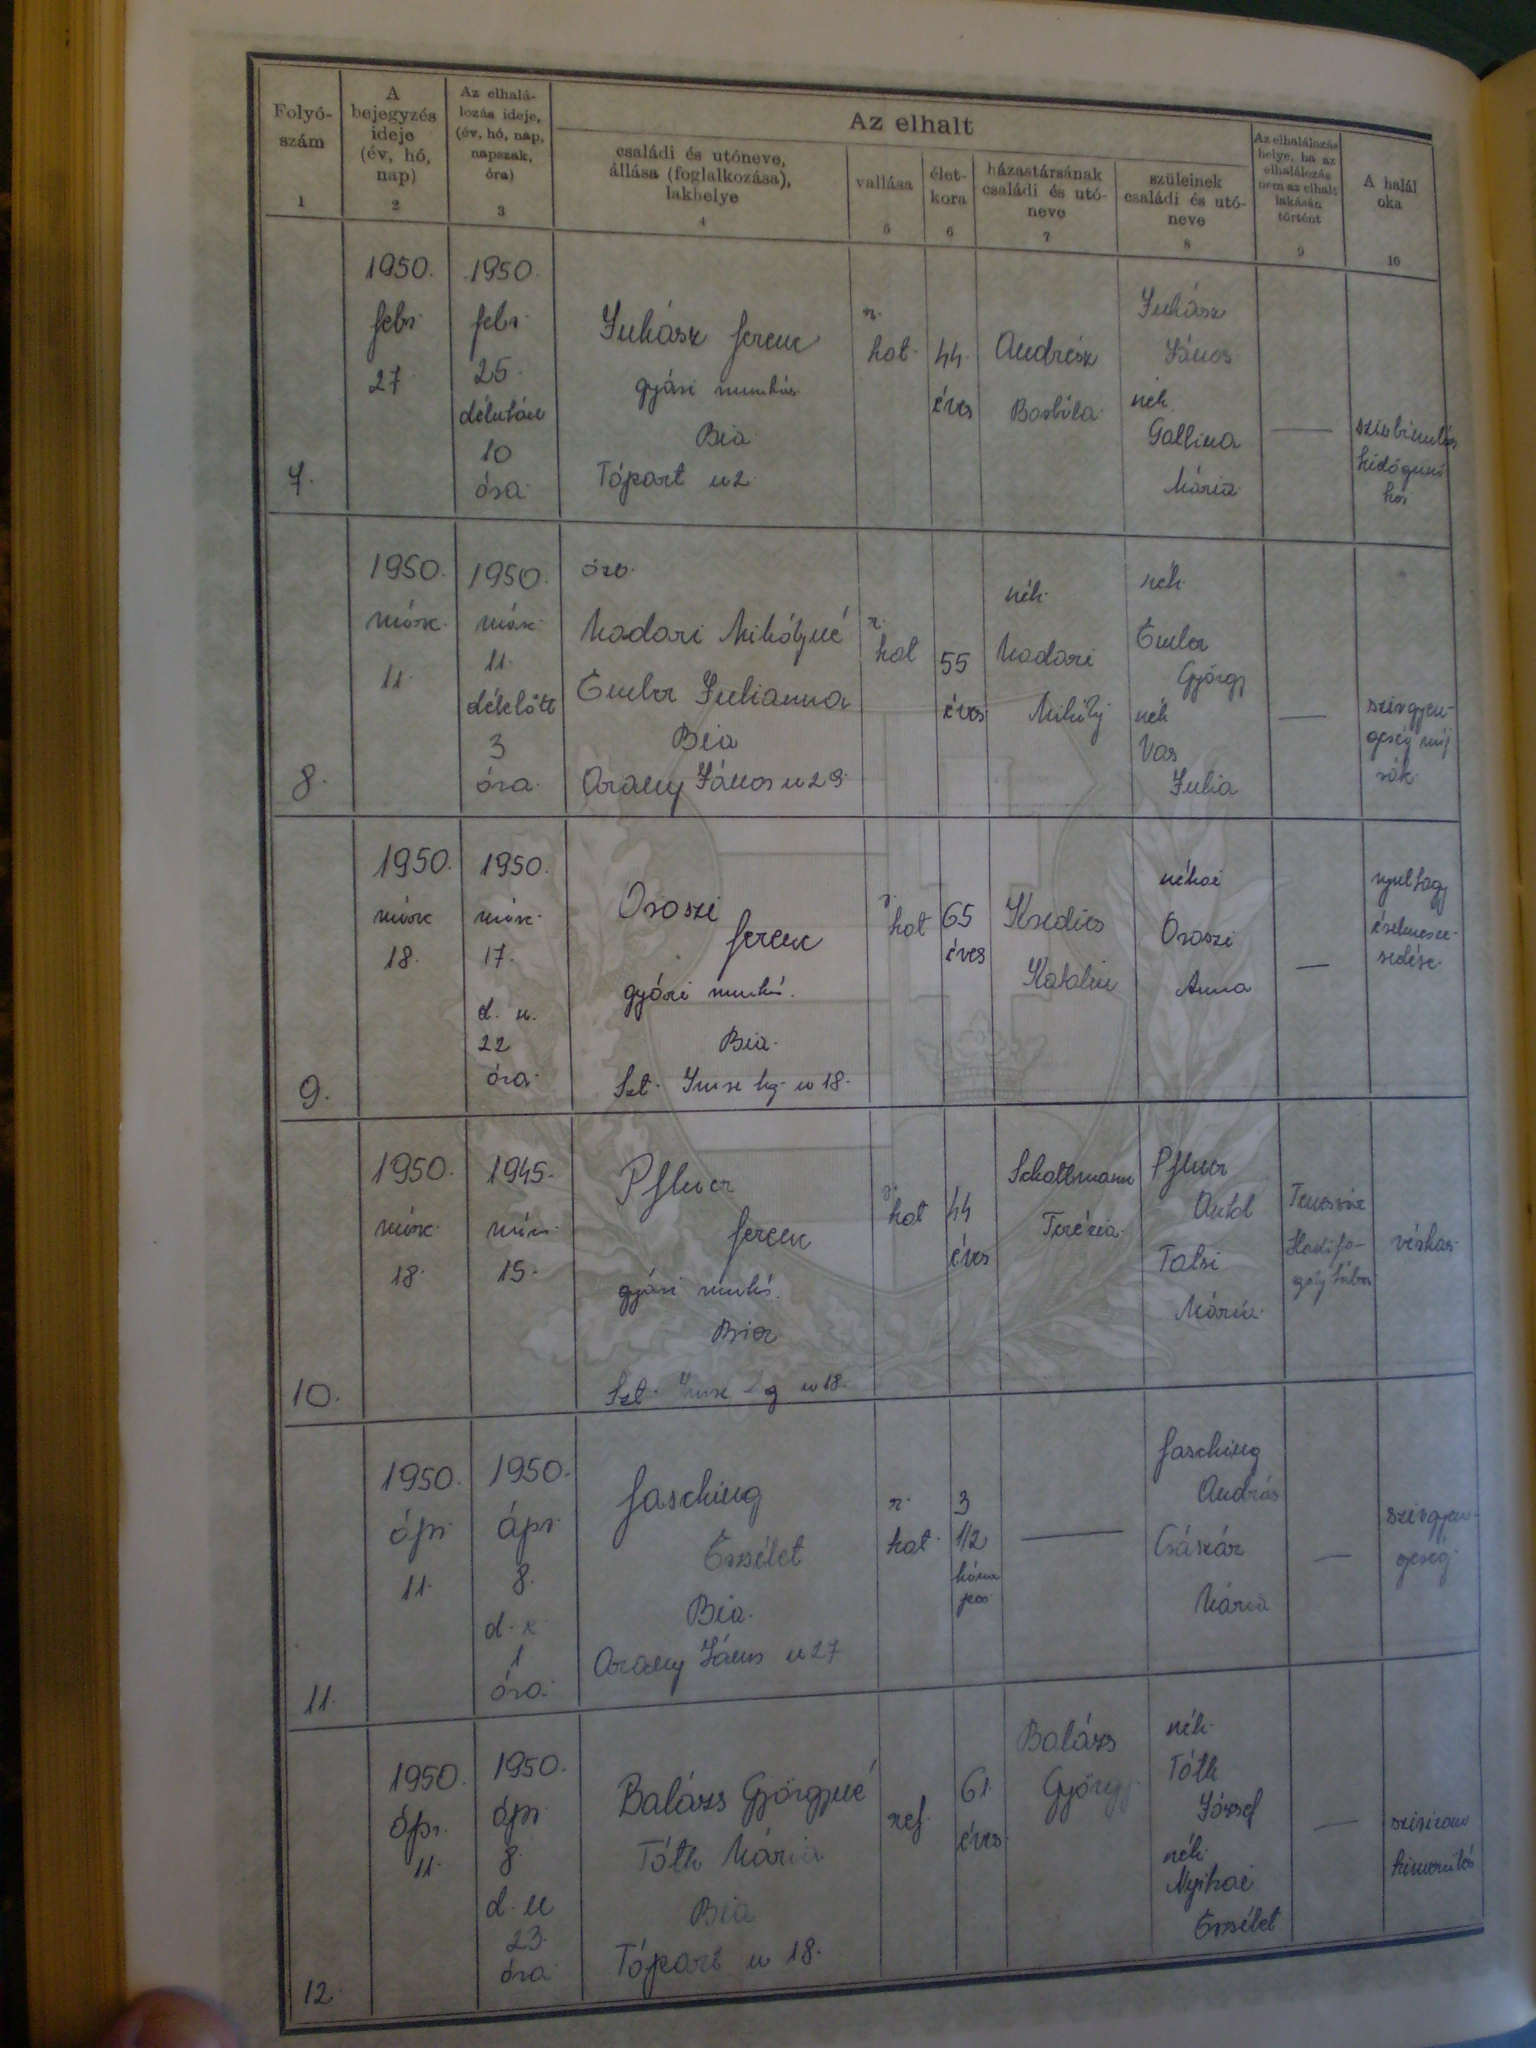 Folyó-
szám
1
A
bejegyzés
ideje
(év, hó,
nap)
2
Az elhalá-
lozás ideje,
(év, hó, nap,
napszak,
óra)
3
Az elhalt
családi és utóneve,
állása (foglalkozása),
lakhelye
4
vallása
5
élet-
kora
6
házastársának
családi és utó-
neve
7
szüleinek
családi és utó-
neve
8
Az elhalálozás
helye, ha az
elhalálozás
nem az elhalt
lakásán
történt
9
A halál
oka
10
7.
1950.
febr.
27
1950.
febr.
25.
délután
10
óra
Juhász Ferenc
gyári munkás
Bia
Tópart u 2.
r.
kat.
44.
éves
Andrész
Borbála
Juhász
János
néh.
Gallina
Mária
—
8.
1950.
márc.
11.
1950.
márc.
11.
délelőtt
3
óra.
özv.
Madari Mihályné
Ember Julianna
Bia
Arany János u 29.
r.
kat
55
éves
néh.
Madari
Mihály
néh.
Ember
György
néh
Vas
Julia
—
szívgyen-
geség máj
rák.
9.
1950.
márc
18.
1950.
márc.
17.
d. u.
22
óra.
Oroszi
Ferenc
gyári munkás.
Bia.
Szt. Imre hg. u 18.
r.
kat
65
éves
Katalin
néhai
Oroszi
Anna
—
10.
1950.
márc.
18.
1945.
márc.
15.
Ferenc
gyári munkás.
Bia
Szt. Imre hg u 18.
r.
kat
44
éves
Terézia.
Antal
Talsi
Mária.
Temesvár
Hadifo-
goly tábor
vérhas.
11.
1950.
ápr.
11.
1950.
ápr.
8.
d. e
1
óra.
Fasching
Erzsébet
Bia.
Arany János u 27
r.
kat.
3
1/2
hóna
pos
—
Fasching
András
Császár
Mária
—
szívgyen-
geség.
12.
1950.
ápr.
11.
1950.
ápr.
8.
d. u
23.
óra
Balázs Györgyné
Tóth Mária
Bia
Tópart u 18.
ref.
61.
éves.
Balázs
György.
néh.
Tóth
József
néh.
Nyikai
Erzsébet
—
szívizom
kimerülés